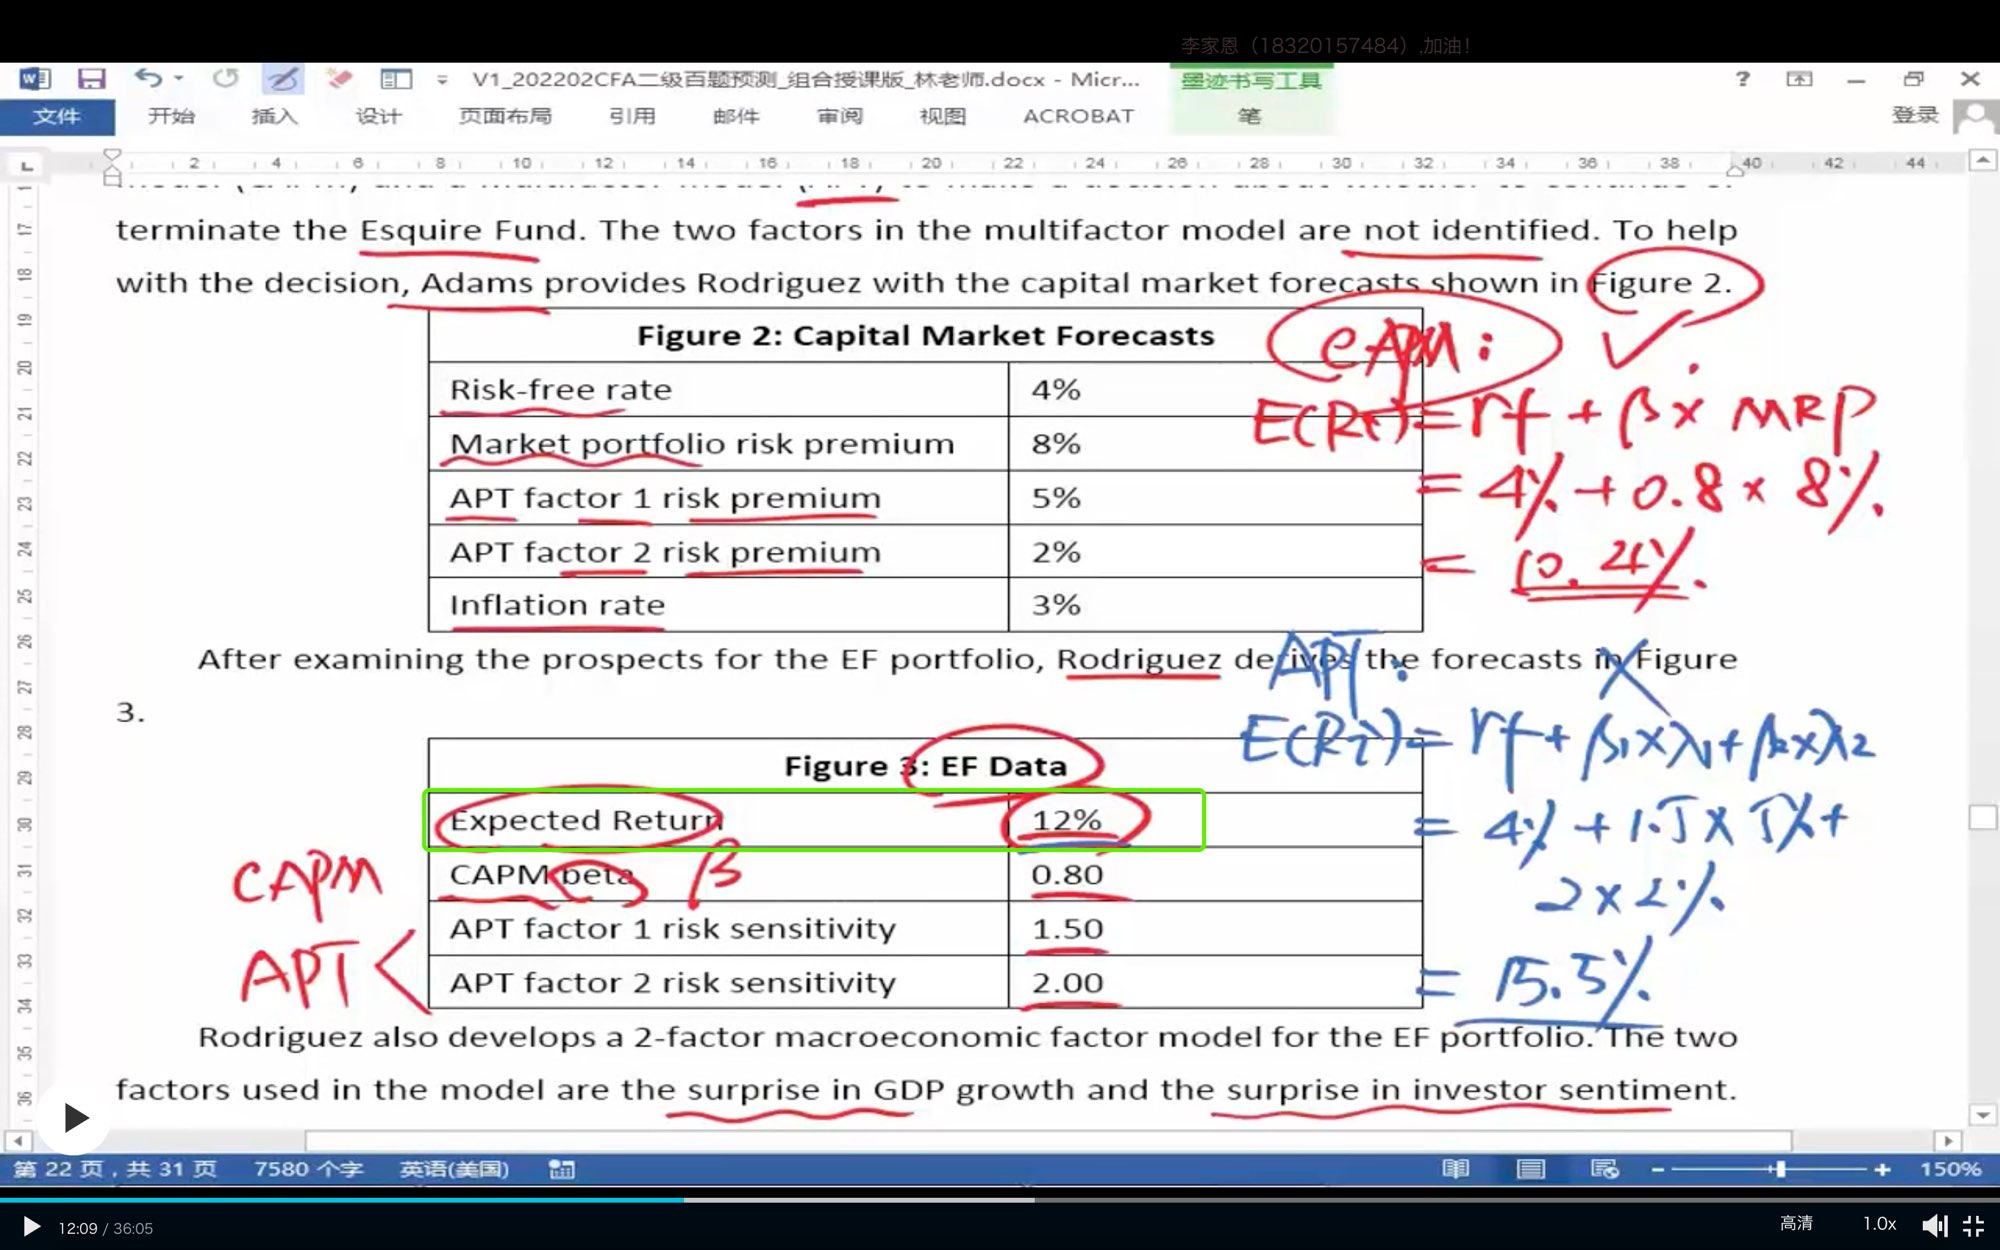 李家恩（18320157484）,加油！
V1_202202CFA二级百题预测_组合授课版_林老师.docx - Micr...
墨迹书写工具
文件 开始 插入 设计 页面布局 引用 邮件 审阅 视图 ACROBAT 笔 登录
2 4 6 8 10 12 14 16 18 20 22 24 26 28 30 32 34 36 38 40 42 44
terminate the Esquire Fund. The two factors in the multifactor model are not identified. To help
with the decision, Adams provides Rodriguez with the capital market forecasts shown in Figure 2.
Figure 2: Capital Market Forecasts
Risk-free rate 4%
Market portfolio risk premium 8%
APT factor 1 risk premium 5%
APT factor 2 risk premium 2%
Inflation rate 3%
CAPM:
E(Ri)=rf+β×MRP
=4%+0.8×8%.
=10.4%.
After examining the prospects for the EF portfolio, Rodriguez derives the forecasts in Figure
3.
APT:
E(Ri)=rf+β1×λ1+β2×λ2
=4%+1.5×5%+
2×2%.
=15.5%.
Figure 3: EF Data
Expected Return 12%
CAPM beta 0.80
APT factor 1 risk sensitivity 1.50
APT factor 2 risk sensitivity 2.00
β
CAPM
APT
Rodriguez also develops a 2-factor macroeconomic factor model for the EF portfolio. The two
factors used in the model are the surprise in GDP growth and the surprise in investor sentiment.
17 18 19 20 21 22 23 24 25 26 27 28 29 30 31 32 33 34 35 36
第 22 页，共 31 页 7580 个字 英语(美国) 150%
12:09 / 36:05 高清 1.0x